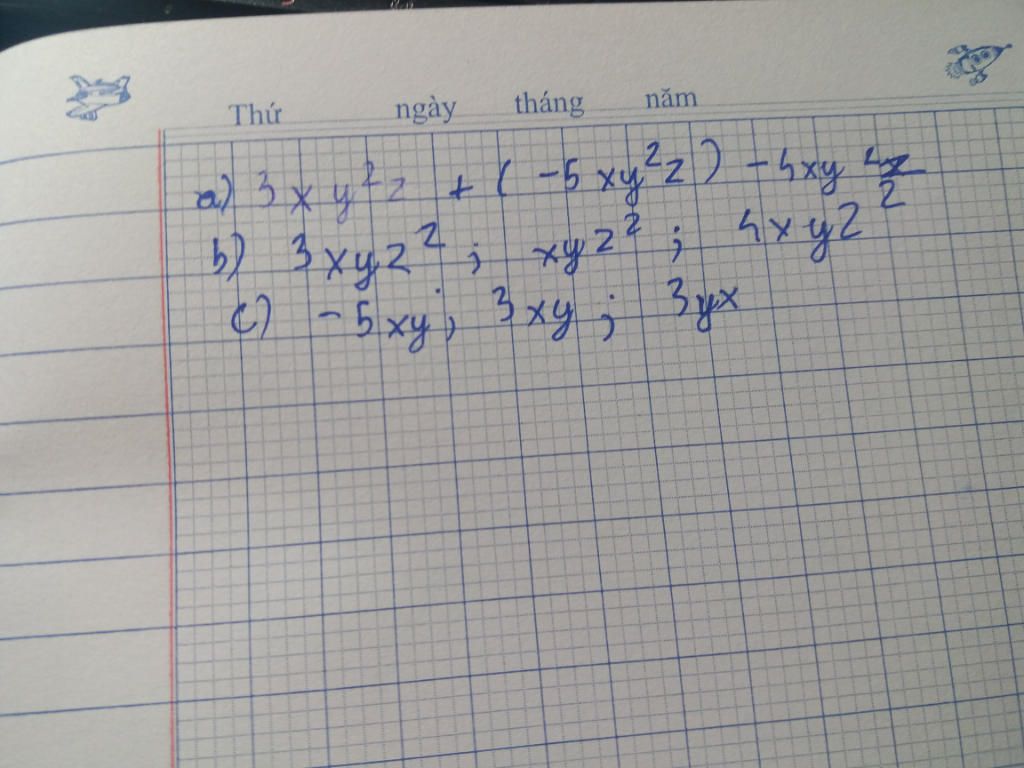 Thứ ngày tháng năm
a) 3xy²z + (-5xy²z) - 4xy
b) 3xyz²; xyz²; 4xyz²
c) -5xy; 3xy; 3yx